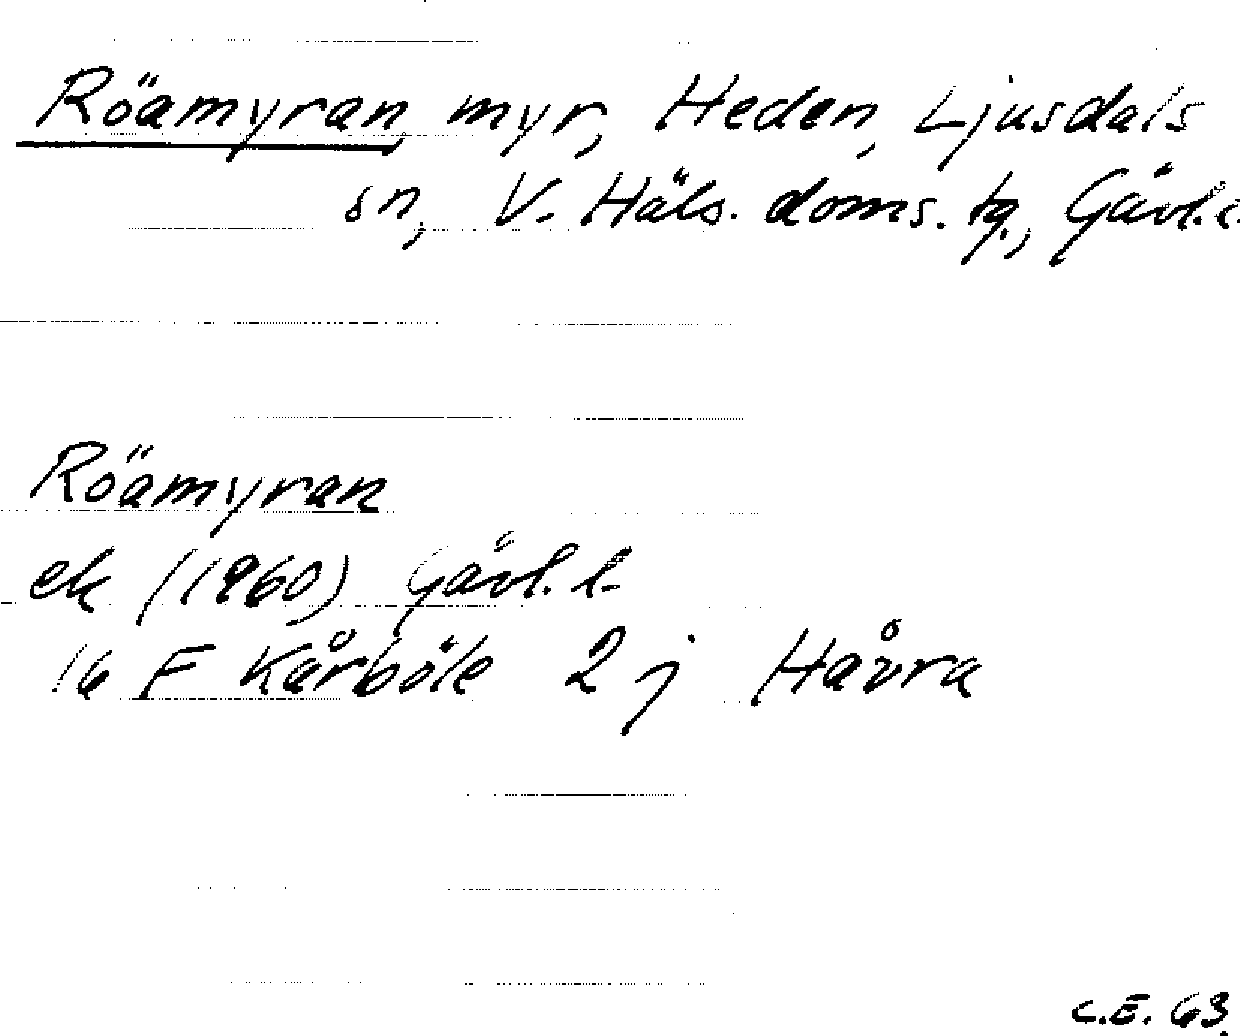 Röamyran myr, Heden, Ljusdals
sn, V. Häls. doms. tg., Gävl.l.
Röamyran
ek (1960) Gävl. l.
16 F Kårböle 2 j Håvra
C.E. 63.